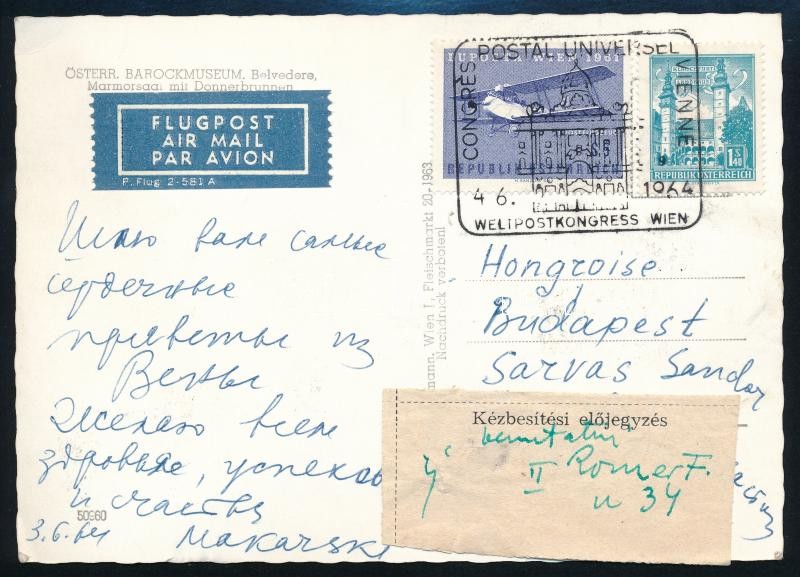 ÖSTERR. BAROCKMUSEUM. Belvedere,
Marmorsaal mit Donnerbrunnen
FLUGPOST
AIR MAIL
PAR AVION
P. Flug 2-581 A
Шлю вам самые
сердечные
приветы из
Вены
Желаю всем
здоровья, успехов
и счастья
50960
3.6.64
Makarski
mann, Wien I., Fleischmarkt 20-1963
Nachdruck verboten!
LUPOSTA WIEN 1961
REPUBLIK ÖSTERREICH
1.40
REPUBLIK ÖSTERREICH
CONGRÈS POSTAL UNIVERSEL VIENNE
4 6. 1964
WELTPOSTKONGRESS WIEN
Hongroise
Budapest
Sarvas Sandor
Kézbesítési előjegyzés
II Romer F.
u 34